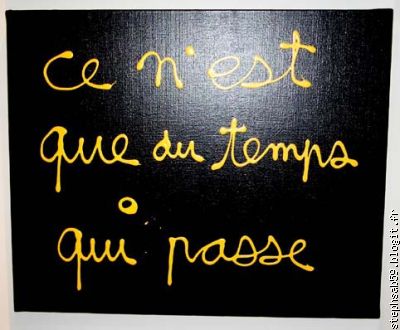 ce n'est
que du temps
qui passe
stephsab59.blogit.fr